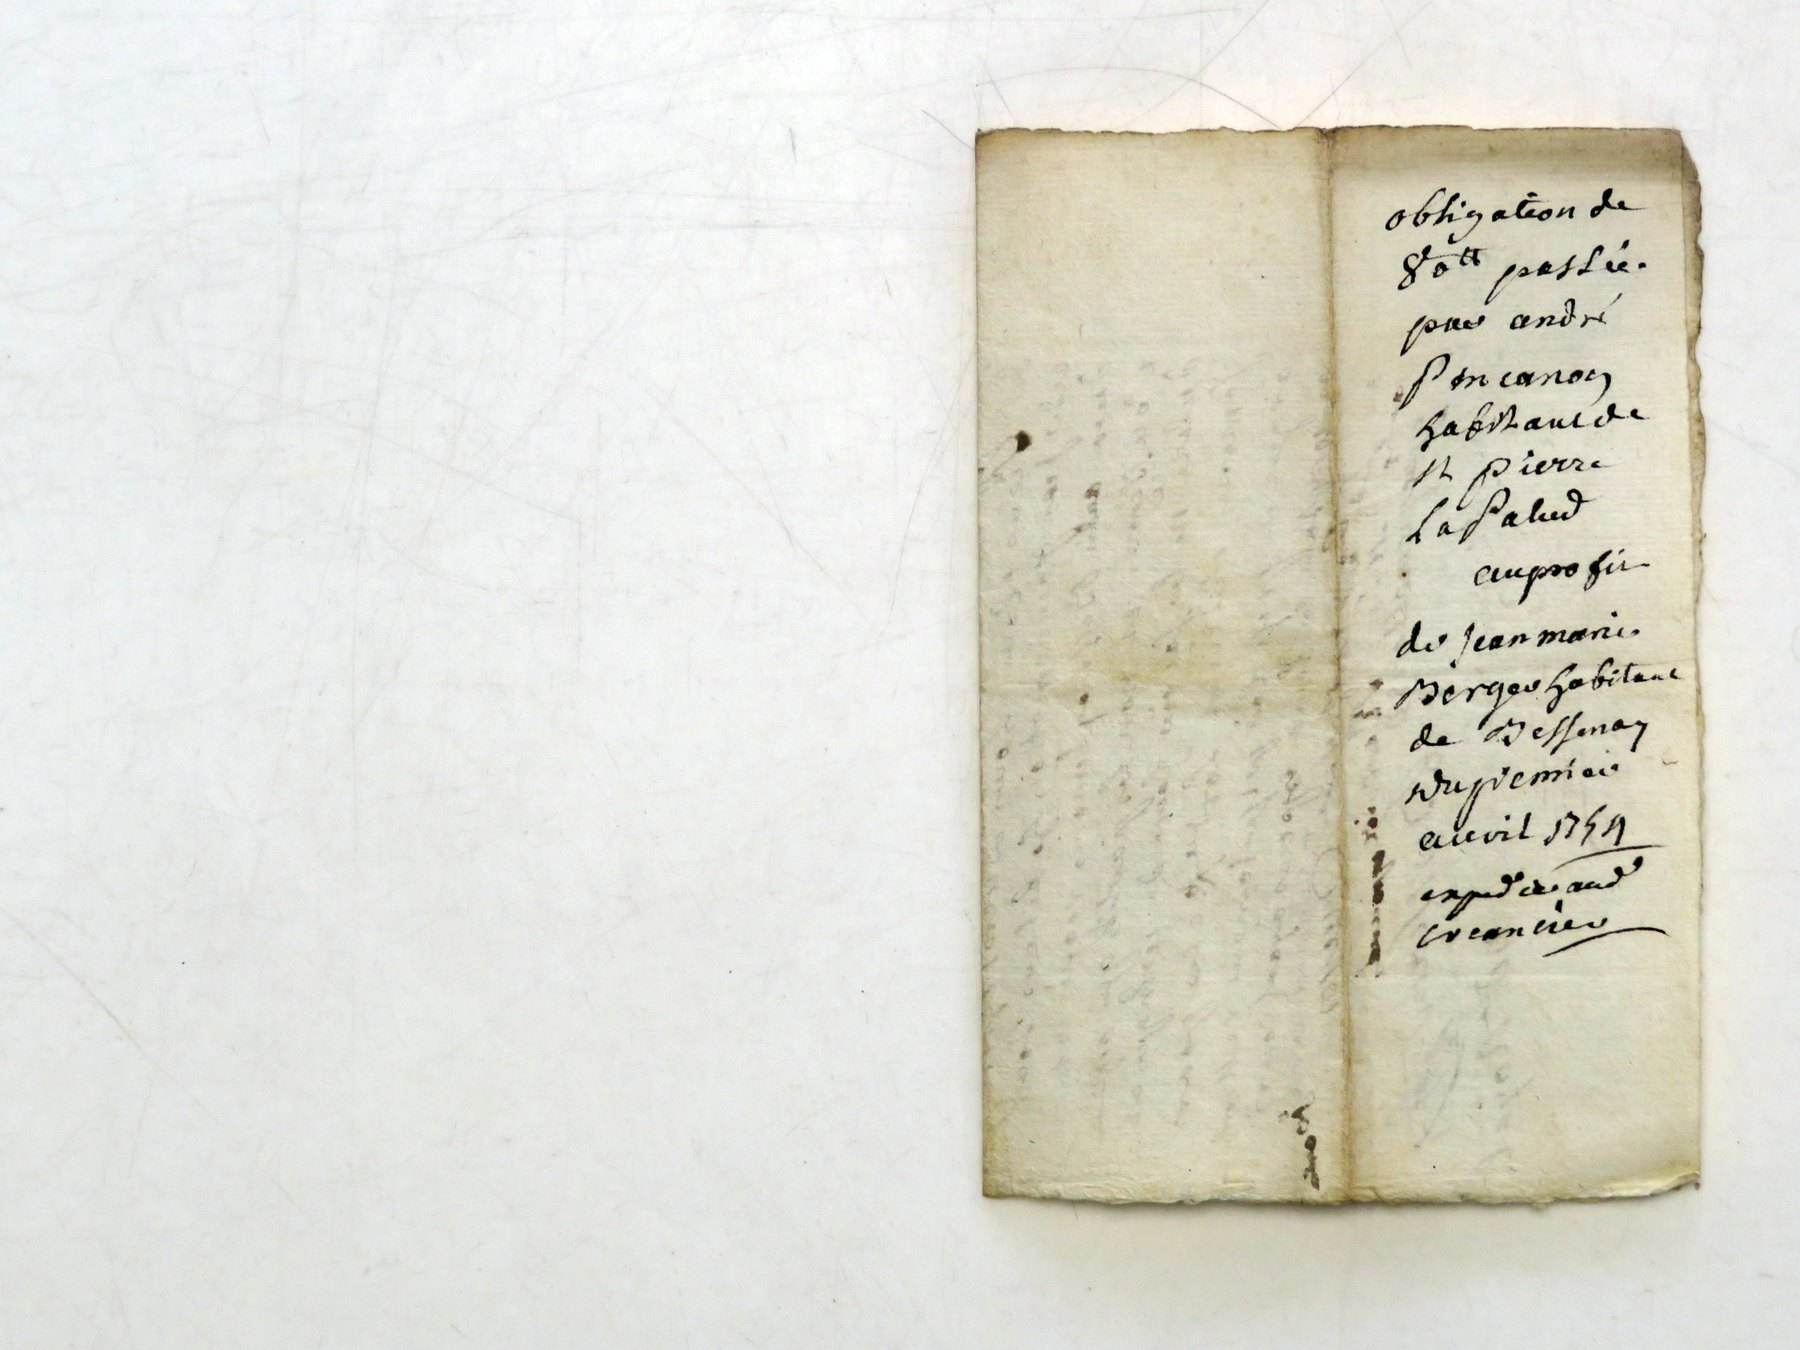 obligation de
80tt passée
par andré
Poncanoy
habitant de
st pierre
La Palud
au profit
de Jean marie
Berger habitant
de Bessenay
du premier
avril 1754
expediée aud
creancier